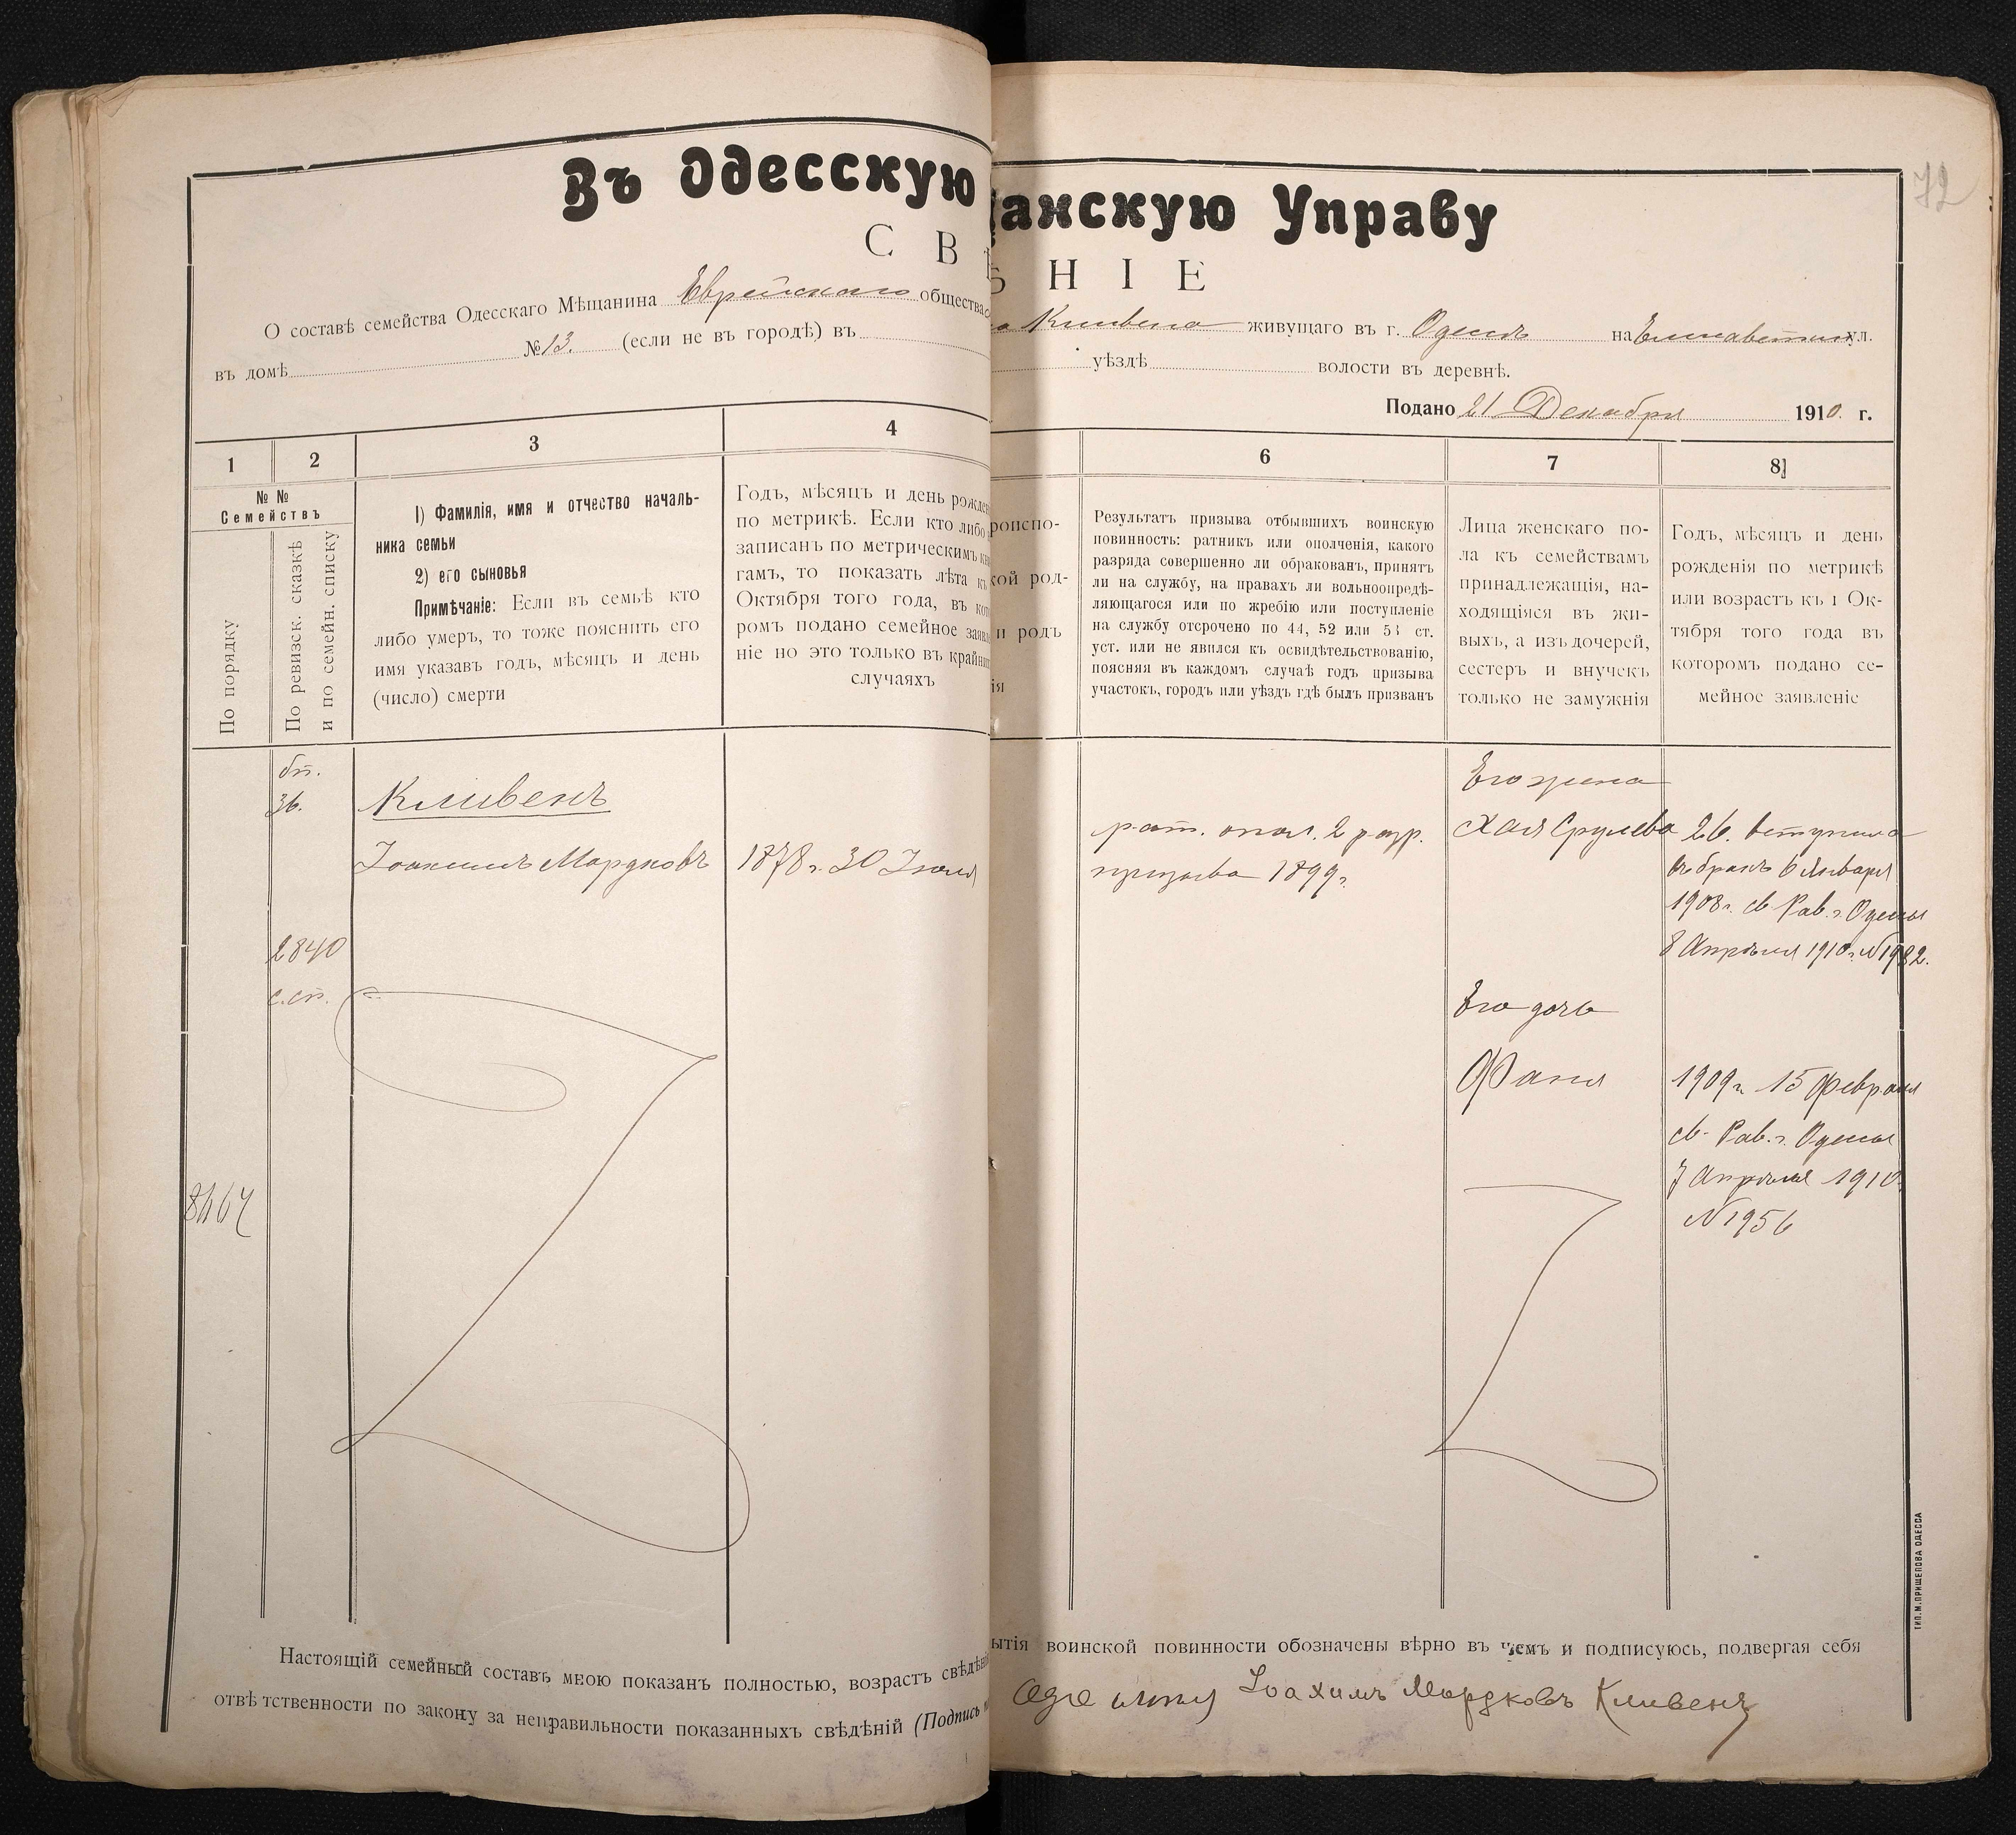 72
Въ Одесскую
щанскую Управу
С В
Н І Е
О составѣ семейства Одесскаго Мѣщанина Еврейскаго общества
Кливена живущаго въ г. Одессѣ на Елисаветин ул.
въ домѣ № 13. (если не въ городѣ) въ
уѣздѣ волости въ деревнѣ.
Подано 21 Декабря 1910. г.
1
2
3
4
6
7
8
№ №
Семействъ
По порядку
По ревизск. сказкѣ
и по семейн. списку
1) Фамилія, имя и отчество началь-
ника семьи
2) его сыновья
Примѣчаніе: Если въ семьѣ кто
либо умеръ, то тоже пояснить его
имя указавъ годъ, мѣсяцъ и день
(число) смерти
Годъ, мѣсяцъ и день рожде
по метрикѣ. Если кто либо
записанъ по метрическимъ кни
гамъ, то показать лѣта къ
Октября того года, въ кото
ромъ подано семейное заявле
ніе но это только въ крайни
случаяхъ
роиспо-
кой род-
и родъ
ія
Результатъ призыва отбывшихъ воинскую
повинность: ратникъ или ополченія, какого
разряда совершенно ли обракованъ, принятъ
ли на службу, на правахъ ли вольноопредѣ-
ляющагося или по жребію или поступленіе
на службу отсрочено по 44, 52 или 53 ст.
уст. или не явился къ освидѣтельствованію,
поясняя въ каждомъ случаѣ годъ призыва
участокъ, городъ или уѣздъ гдѣ былъ призванъ
Лица женскаго по-
ла къ семействамъ
принадлежащія, на-
ходящіяся въ жи-
выхъ, а изъ дочерей,
сестеръ и внучекъ
только не замужнія
Годъ, мѣсяцъ и день
рожденія по метрикѣ
или возрастъ къ 1 Ок-
тября того года въ
которомъ подано се-
мейное заявленіе
бп.
36.
Кливенъ
Іоахимъ Мордковъ
1878 г. 30 Іюля
2840
с.сп.
рат. опол. 2 разр.
призыва 1899 г.
Его жена
Хая Срулева
26. вступила
въ бракъ 6 Января
1908 г. св. Рав. г. Одессы
8 Апрѣля 1910 г. № 1982.
Его дочь
Фаня
1909 г. 15 Февраля
св. Рав. г. Одессы
7 Апрѣля 1910
№ 1956
Настоящій семейный составъ мною показанъ полностью, возрастъ свѣдѣні
ытія воинской повинности обозначены вѣрно въ чемъ и подписуюсь, подвергая себя
отвѣтственности по закону за неправильности показанныхъ свѣдѣній (Подпись
Іоахимъ Мордковъ Кливенъ
ТИП. М. ПРИЩЕПОВА ОДЕССА